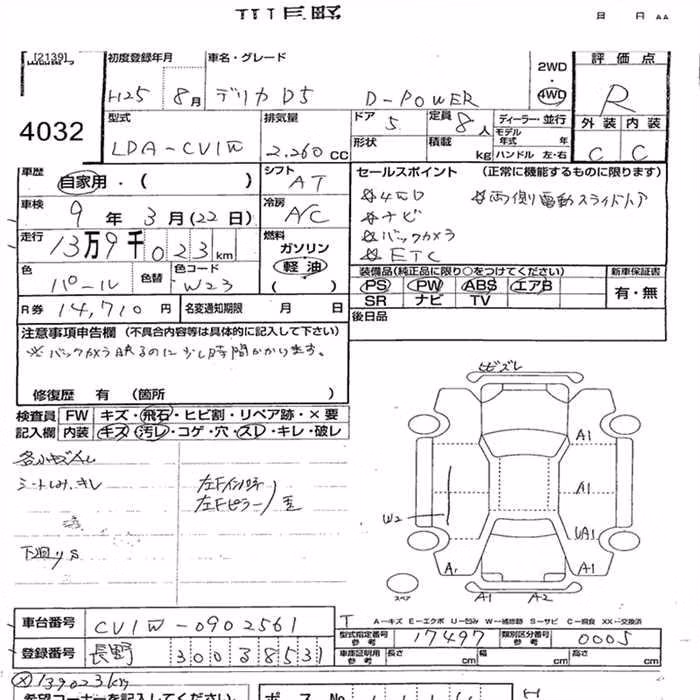 [2139]
4032
初度登録年月
H25 8月
車名・グレード
デリカ D5 D-POWER
2WD
4WD
評価点
R
外装 内装
C C
型式
LDA-CV1W
排気量
2.260 cc
ドア
5
定員
8人
形状
積載
kg
ディーラー・並行
モデル年式 年
ハンドル 左・右
車歴
自家用・( )
シフト
AT
車検
9年3月(22日)
冷房
A/C
走行
13万9千023km
燃料
ガソリン
軽油
( )
色
パール
色替
色コード
W23
R券 14,710円
名変通知期限 月 日
セールスポイント (正常に機能するものに限ります)
☆4WD ☆両側電動スライドドア
☆ナビ
☆バックカメラ
☆ETC
装備品(純正品に限り○をつけてください)
PS PW ABS エアB
SR ナビ TV
新車保証書
有・無
後日品
注意事項申告欄 (不具合内容等は具体的に記入して下さい)
※バックカメラ映るのに少し時間かかります。
修復歴 有 (箇所 )
検査員記入欄
FW キズ・飛石・ヒビ割・リペア跡・×要
内装 キズ・汚レ・コゲ・穴・スレ・キレ・破レ
シートしみ、キレ
左Fピラー
下廻りS
ヒビズレ
A1
A1
W2
UA1
A1
A1
A2
スペア
車台番号 CV1W-0902561
登録番号 長野 300 3 8531
A-キズ E-エクボ U-凹み W-補修跡 S-サビ C-腐食 XX-交換済
型式指定番号 参考 17497
類別区分番号 参考 0005
車庫証明用 参考 長さ cm 幅 cm 高さ cm
139023km